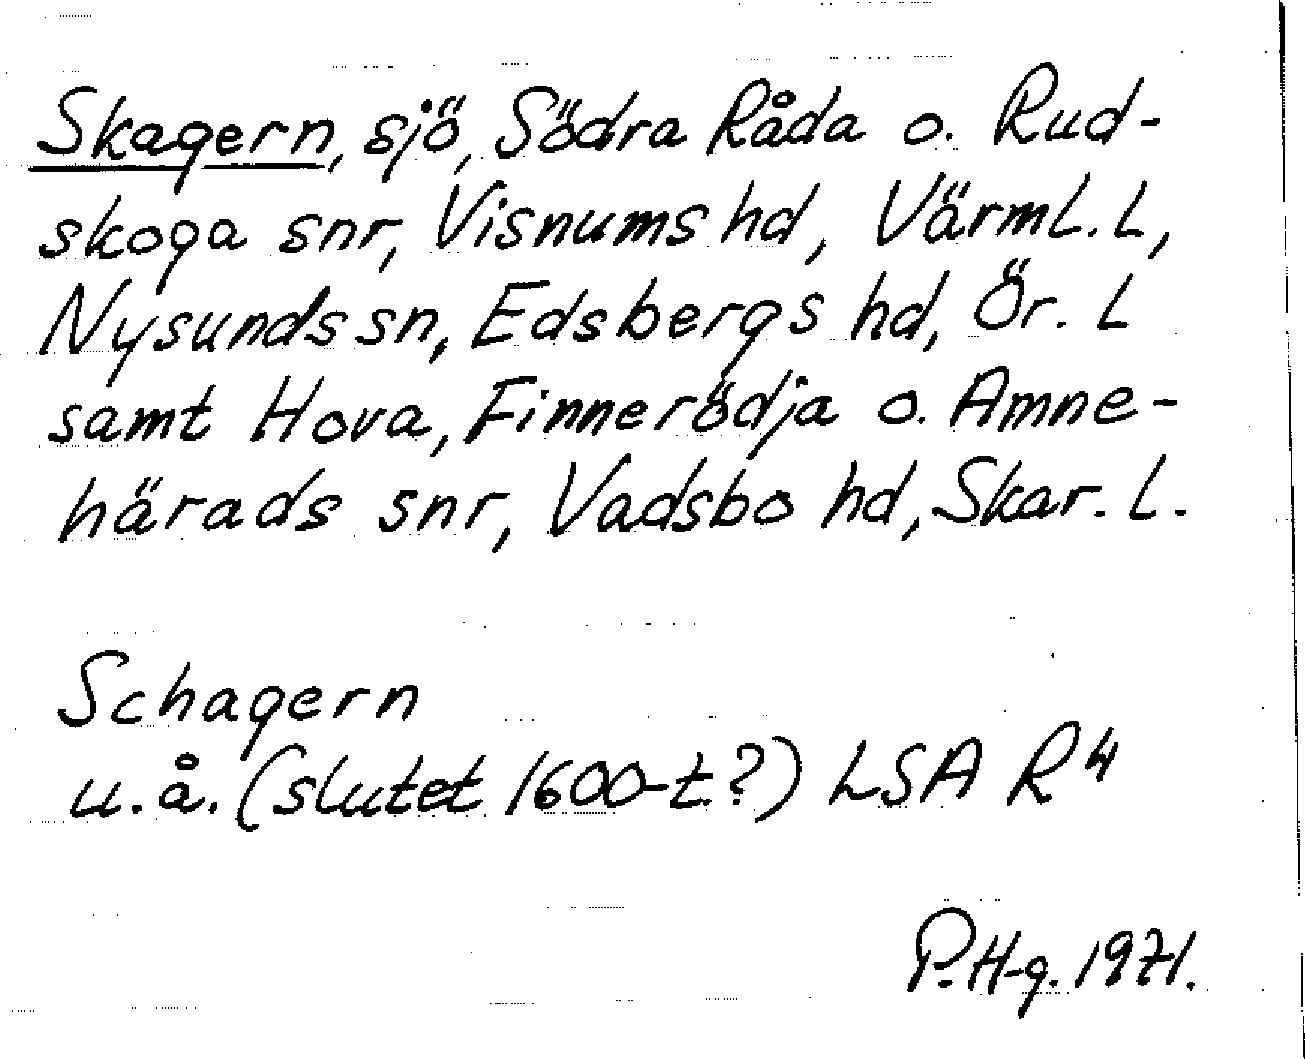 Skagern, sjö, Södra Råda o. Rud-
skoga snr, Visnums hd, Värml. L,
Nysunds sn, Edsbergs hd, Ör. L
samt Hova, Finnerödja o. Amne-
härads snr, Vadsbo hd, Skar. L.
Schagern
u.å. (slutet 1600-t.?) LSA R4
P. H-g. 1971.